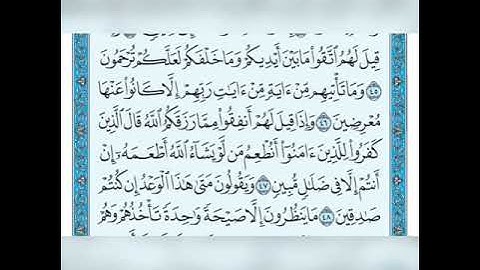 قِيلَ لَهُمُ ٱتَّقُوا۟ مَا بَيْنَ أَيْدِيكُمْ وَمَا خَلْفَكُمْ لَعَلَّكُمْ تُرْحَمُونَ
٤٥ وَمَا تَأْتِيهِم مِّنْ ءَايَةٍ مِّنْ ءَايَٰتِ رَبِّهِمْ إِلَّا كَانُوا۟ عَنْهَا
مُعْرِضِينَ ٤٦ وَإِذَا قِيلَ لَهُمْ أَنفِقُوا۟ مِمَّا رَزَقَكُمُ ٱللَّهُ قَالَ ٱلَّذِينَ
كَفَرُوا۟ لِلَّذِينَ ءَامَنُوٓا۟ أَنُطْعِمُ مَن لَّوْ يَشَآءُ ٱللَّهُ أَطْعَمَهُۥٓ إِنْ
أَنتُمْ إِلَّا فِى ضَلَٰلٍ مُّبِينٍ ٤٧ وَيَقُولُونَ مَتَىٰ هَٰذَا ٱلْوَعْدُ إِن كُنتُمْ
صَٰدِقِينَ ٤٨ مَا يَنظُرُونَ إِلَّا صَيْحَةً وَٰحِدَةً تَأْخُذُهُمْ وَهُمْ